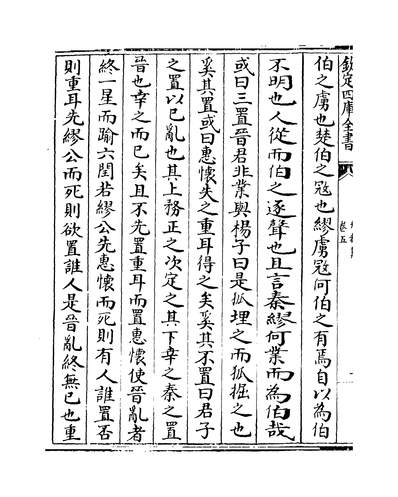 欽定四庫全書
卷五
伯之虜也楚伯之冦也繆虜冦何伯之有焉自以為伯
不明也人從而伯之逐聲也且言秦繆何業而為伯哉
或曰三置晉君非業與楊子曰是狐埋之而狐掘之也
奚其置或曰惠懷失之重耳得之矣奚其不置曰君子
之置以已亂也其上務正之次定之其下幸之秦之置
晉也幸之而已矣且不先置重耳而置惠懷使晉亂者
終一星而踰六閏若繆公先惠懷而死則有人誰置否
則重耳先繆公而死則欲置誰人是晉亂終無已也重